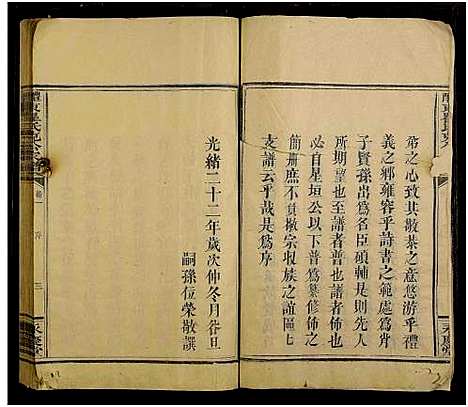 弟之心致其敬恭之意悠游乎禮
義之鄉雍容乎詩書之範處爲肖
子賢孫出爲名臣碩輔是則先人
所期望也至譜者普也譜者佈之
也首自星垣公以下普爲纂修佈之
簡冊庶不負敬宗收族之誼區七
支譜云乎哉是爲序
光緒二十二年歲次仲冬月谷旦
嗣孫位榮敬譔
三